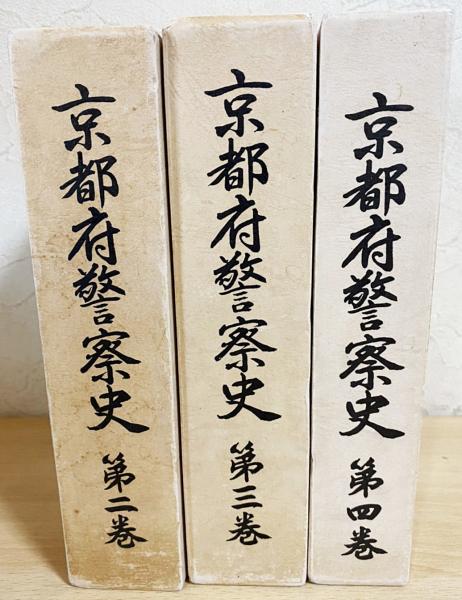 京都府警察史 第二巻
京都府警察史 第三巻
京都府警察史 第四巻